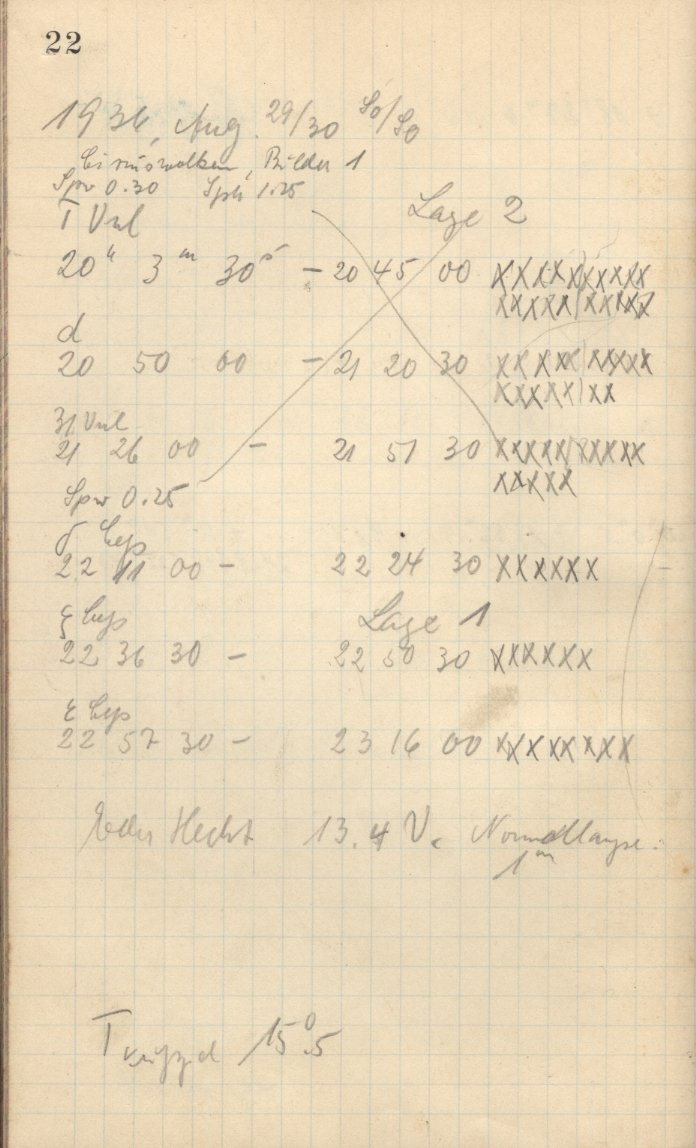 22
1936, Aug. 29/30 So/So
Cirruswolken, Bilder 1
Spw 0.30 Sph 1.25
T Vul Lage 2
20h 3m 30s – 20 45 00 XXXXXXXXXX
XXXXXXXXXX
d
20 50 00 – 21 20 30 XXXXXXXXXX
XXXXXXX
31 Vul
21 26 00 – 21 51 30 XXXXXXXXXX
XXXXX
Spw 0.25
22 11 00 – 22 24 30 XXXXXX
ξ Cep Lage 1
22 36 30 – 22 50 30 XXXXXX
ε Cep
22 57 30 – 23 16 00 XXXXXXXX
Hecht 13.4 V. Normallampe.
1m
T 15°.5